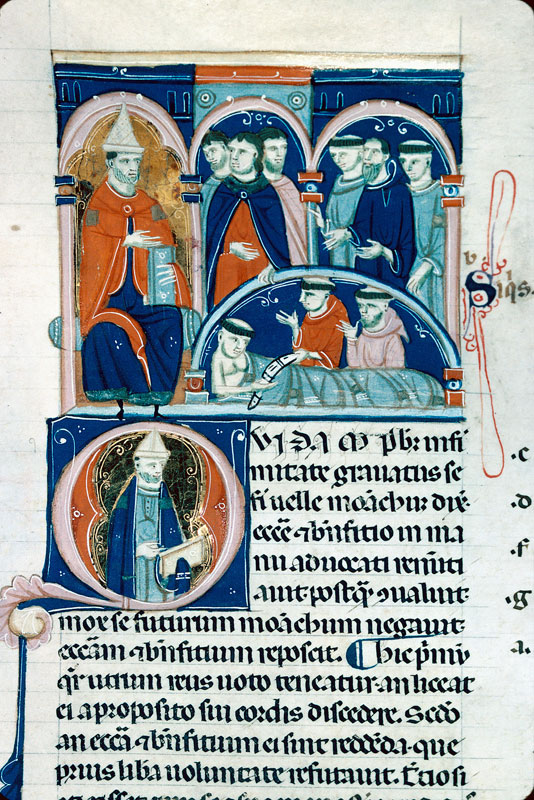 v i
Siqs.
QVIDAM pbr infi
mitate gravatus se
fi uelle monachum dixit
eccẽ ⁊ bñfitio in ma
nu aduocati renuti
auit· postqᷓ ꝯualuit·
.c
.d
.f
.g
mox se futurum monachum negauit·
eccãm ⁊ bñfitium reposcit. Hic pͥmũ
qͥr utrum reus uoto teneatur· an liceat
ei a proposito sui cordis discedere. Scdõ
an eccã ⁊ bñfitium ei sint reddẽda· que
prius libãa uoluntate refutauit. Tĉio si
.a.